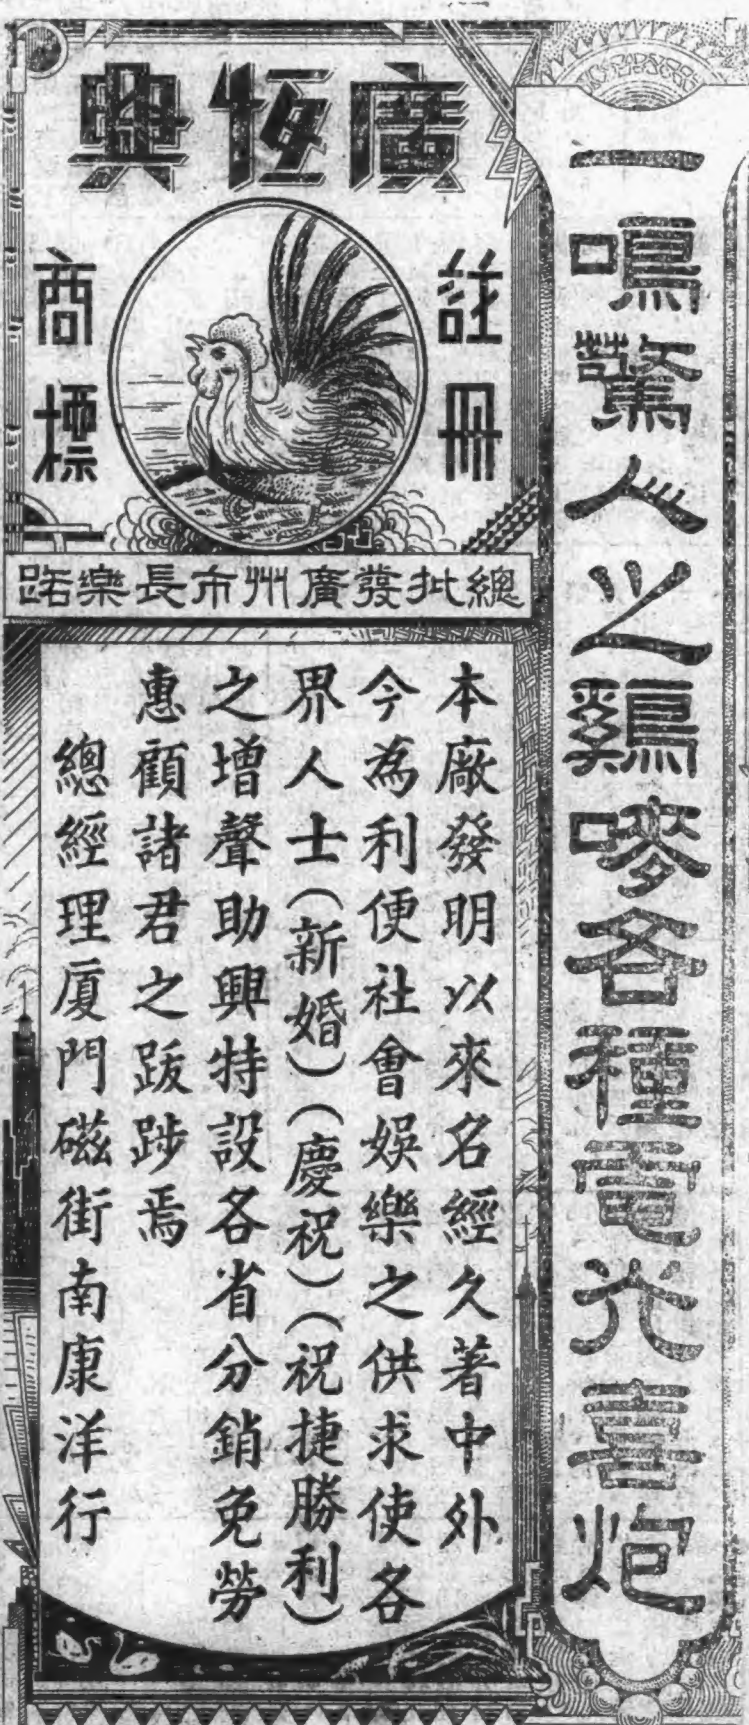 一鳴驚人之鷄嘜各種電光喜炮
廣恆興
註冊
商標
總批發廣州市長樂路
本廠發明以來名經久著中外
今為利便社會娛樂之供求使各
界人士(新婚)(慶祝)(祝捷勝利)
之增聲助興特設各省分銷免勞
惠顧諸君之跋踄焉
總經理厦門磁街南康洋行